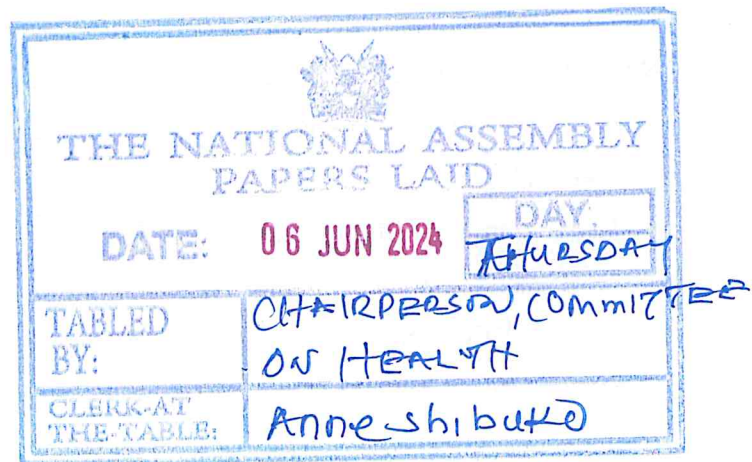 THE NATIONAL ASSEMBLY
PAPERS LAID
DATE: 06 JUN 2024 DAY:
THURSDAY
TABLED BY: CHAIRPERSON, COMMITTEE
ON HEALTH
CLERK-AT THE-TABLE: Anne Shibuko